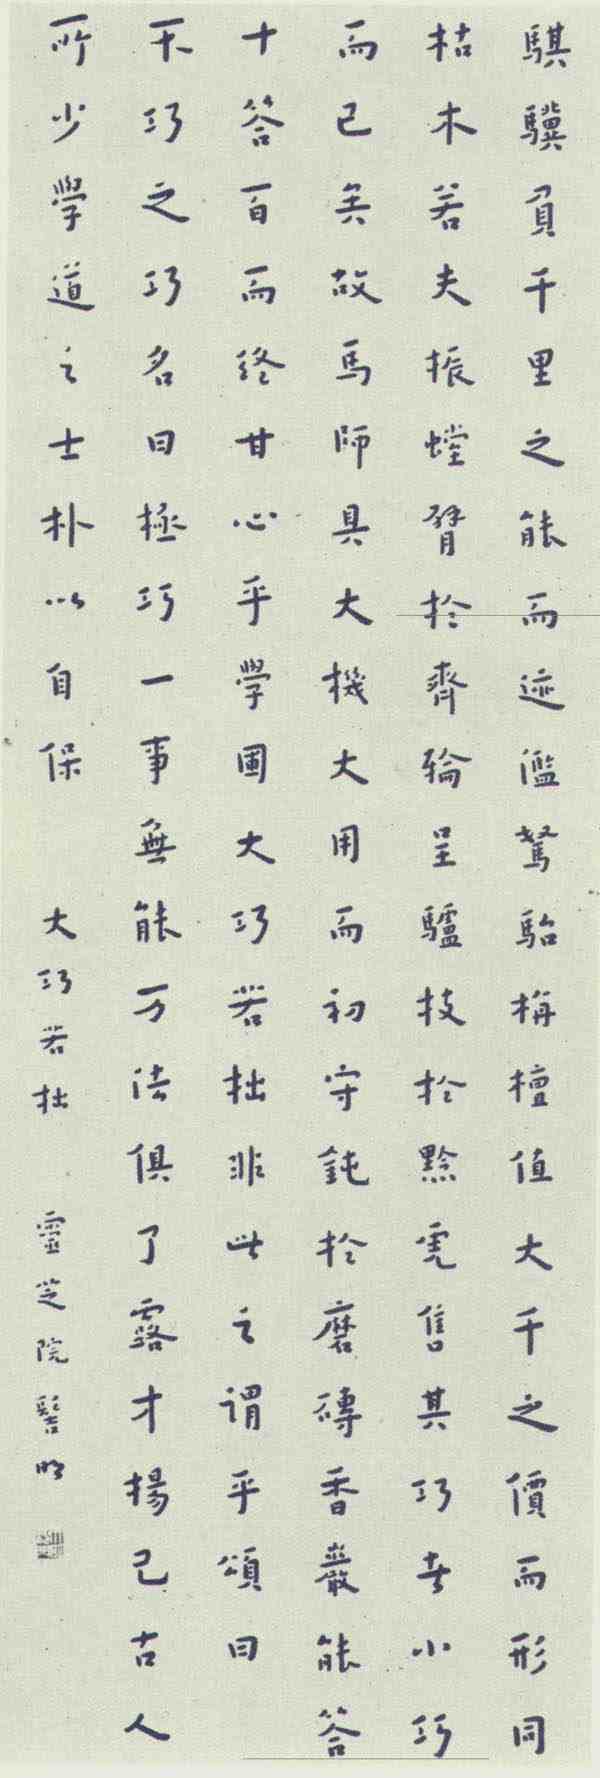 騏驥負千里之能而迹濫駑駘栴檀值大千之價而形同
枯木若夫振螳臂於齊輪呈驢技於黔虎售其巧者小巧
而已矣故馬師具大機大用而初守鈍於磨磚香嚴能答
十答百而終甘心乎學圃大巧若拙非此之謂乎頌曰
不巧之巧名曰極巧一事無能万法俱了露才揚己古人
所少學道之士朴以自保
大巧若拙 靈芝院 明